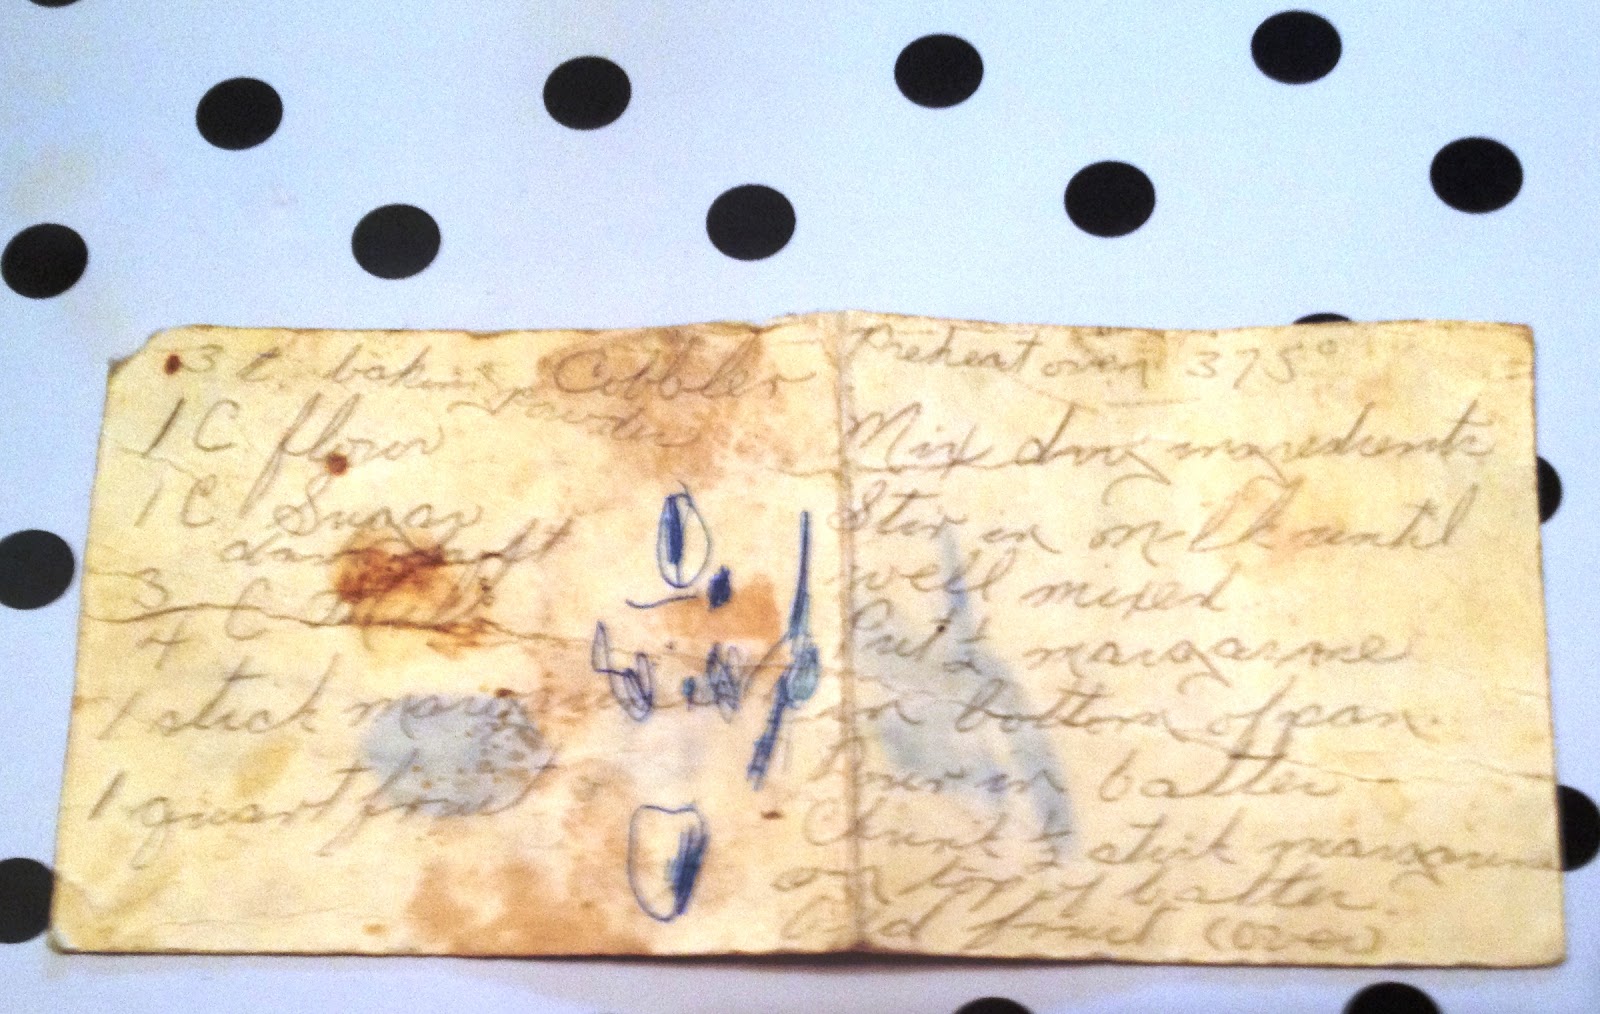 3 t. baking Cobbler
powder
1 C flour
1 C Sugar
dash salt
3/4 C Milk
1 stick margarine
1 quart fruit
Preheat oven 375°
Mix dry ingredients
Stir in milk until
well mixed
Put ½ margarine
in bottom of pan.
Pour in batter
Chunk ½ stick margarine
on top of batter.
Add fruit (over)